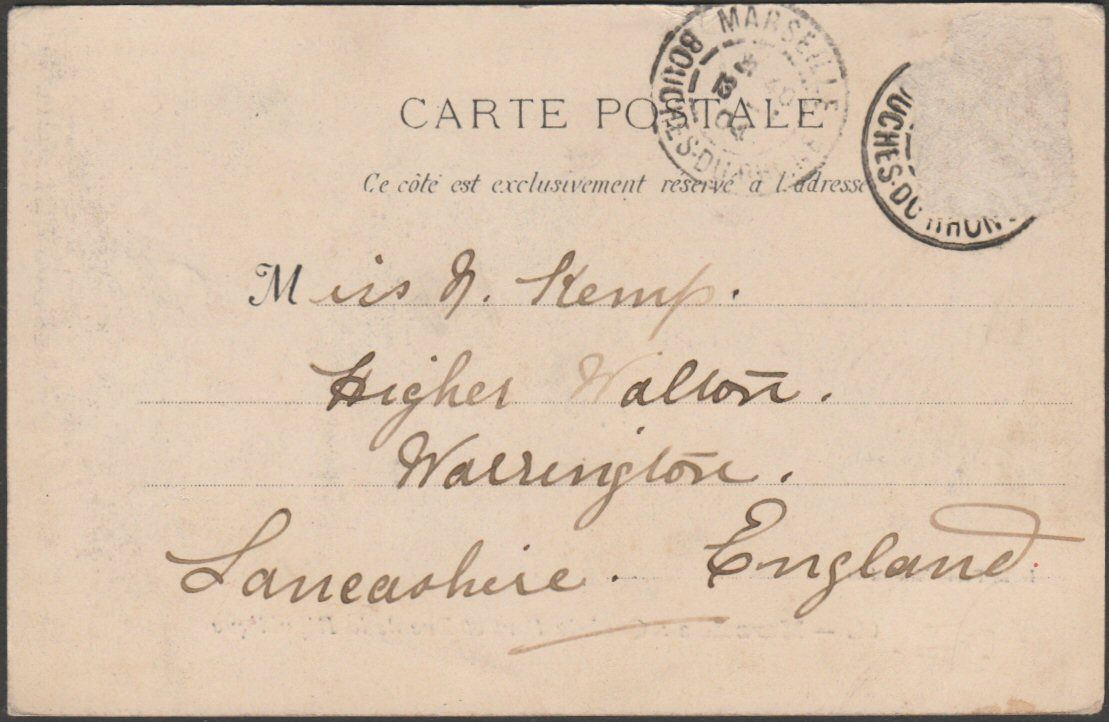 CARTE POSTALE
MARSEILLE
BOUCHES-DU-RHONE
UCHES-DU RHON
Ce côté est exclusivement réservé à l'adresse
Miss N. Kemp.
Higher Walton.
Warrington.
Lancashire. England